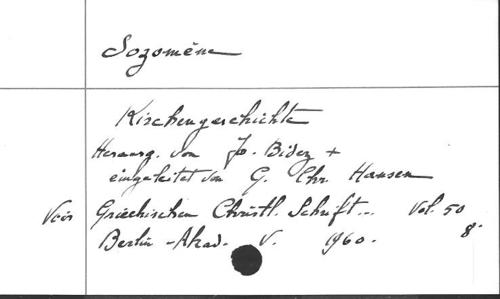 Sozomène
Kirchengeschichte
Herausg. von Jo. Bidez +
eingeleitet von G. Chr. Hansen
Voir Griechischen Christl. Schrift... Vol. 50
Berlin - Akad. V. 1960. 8°